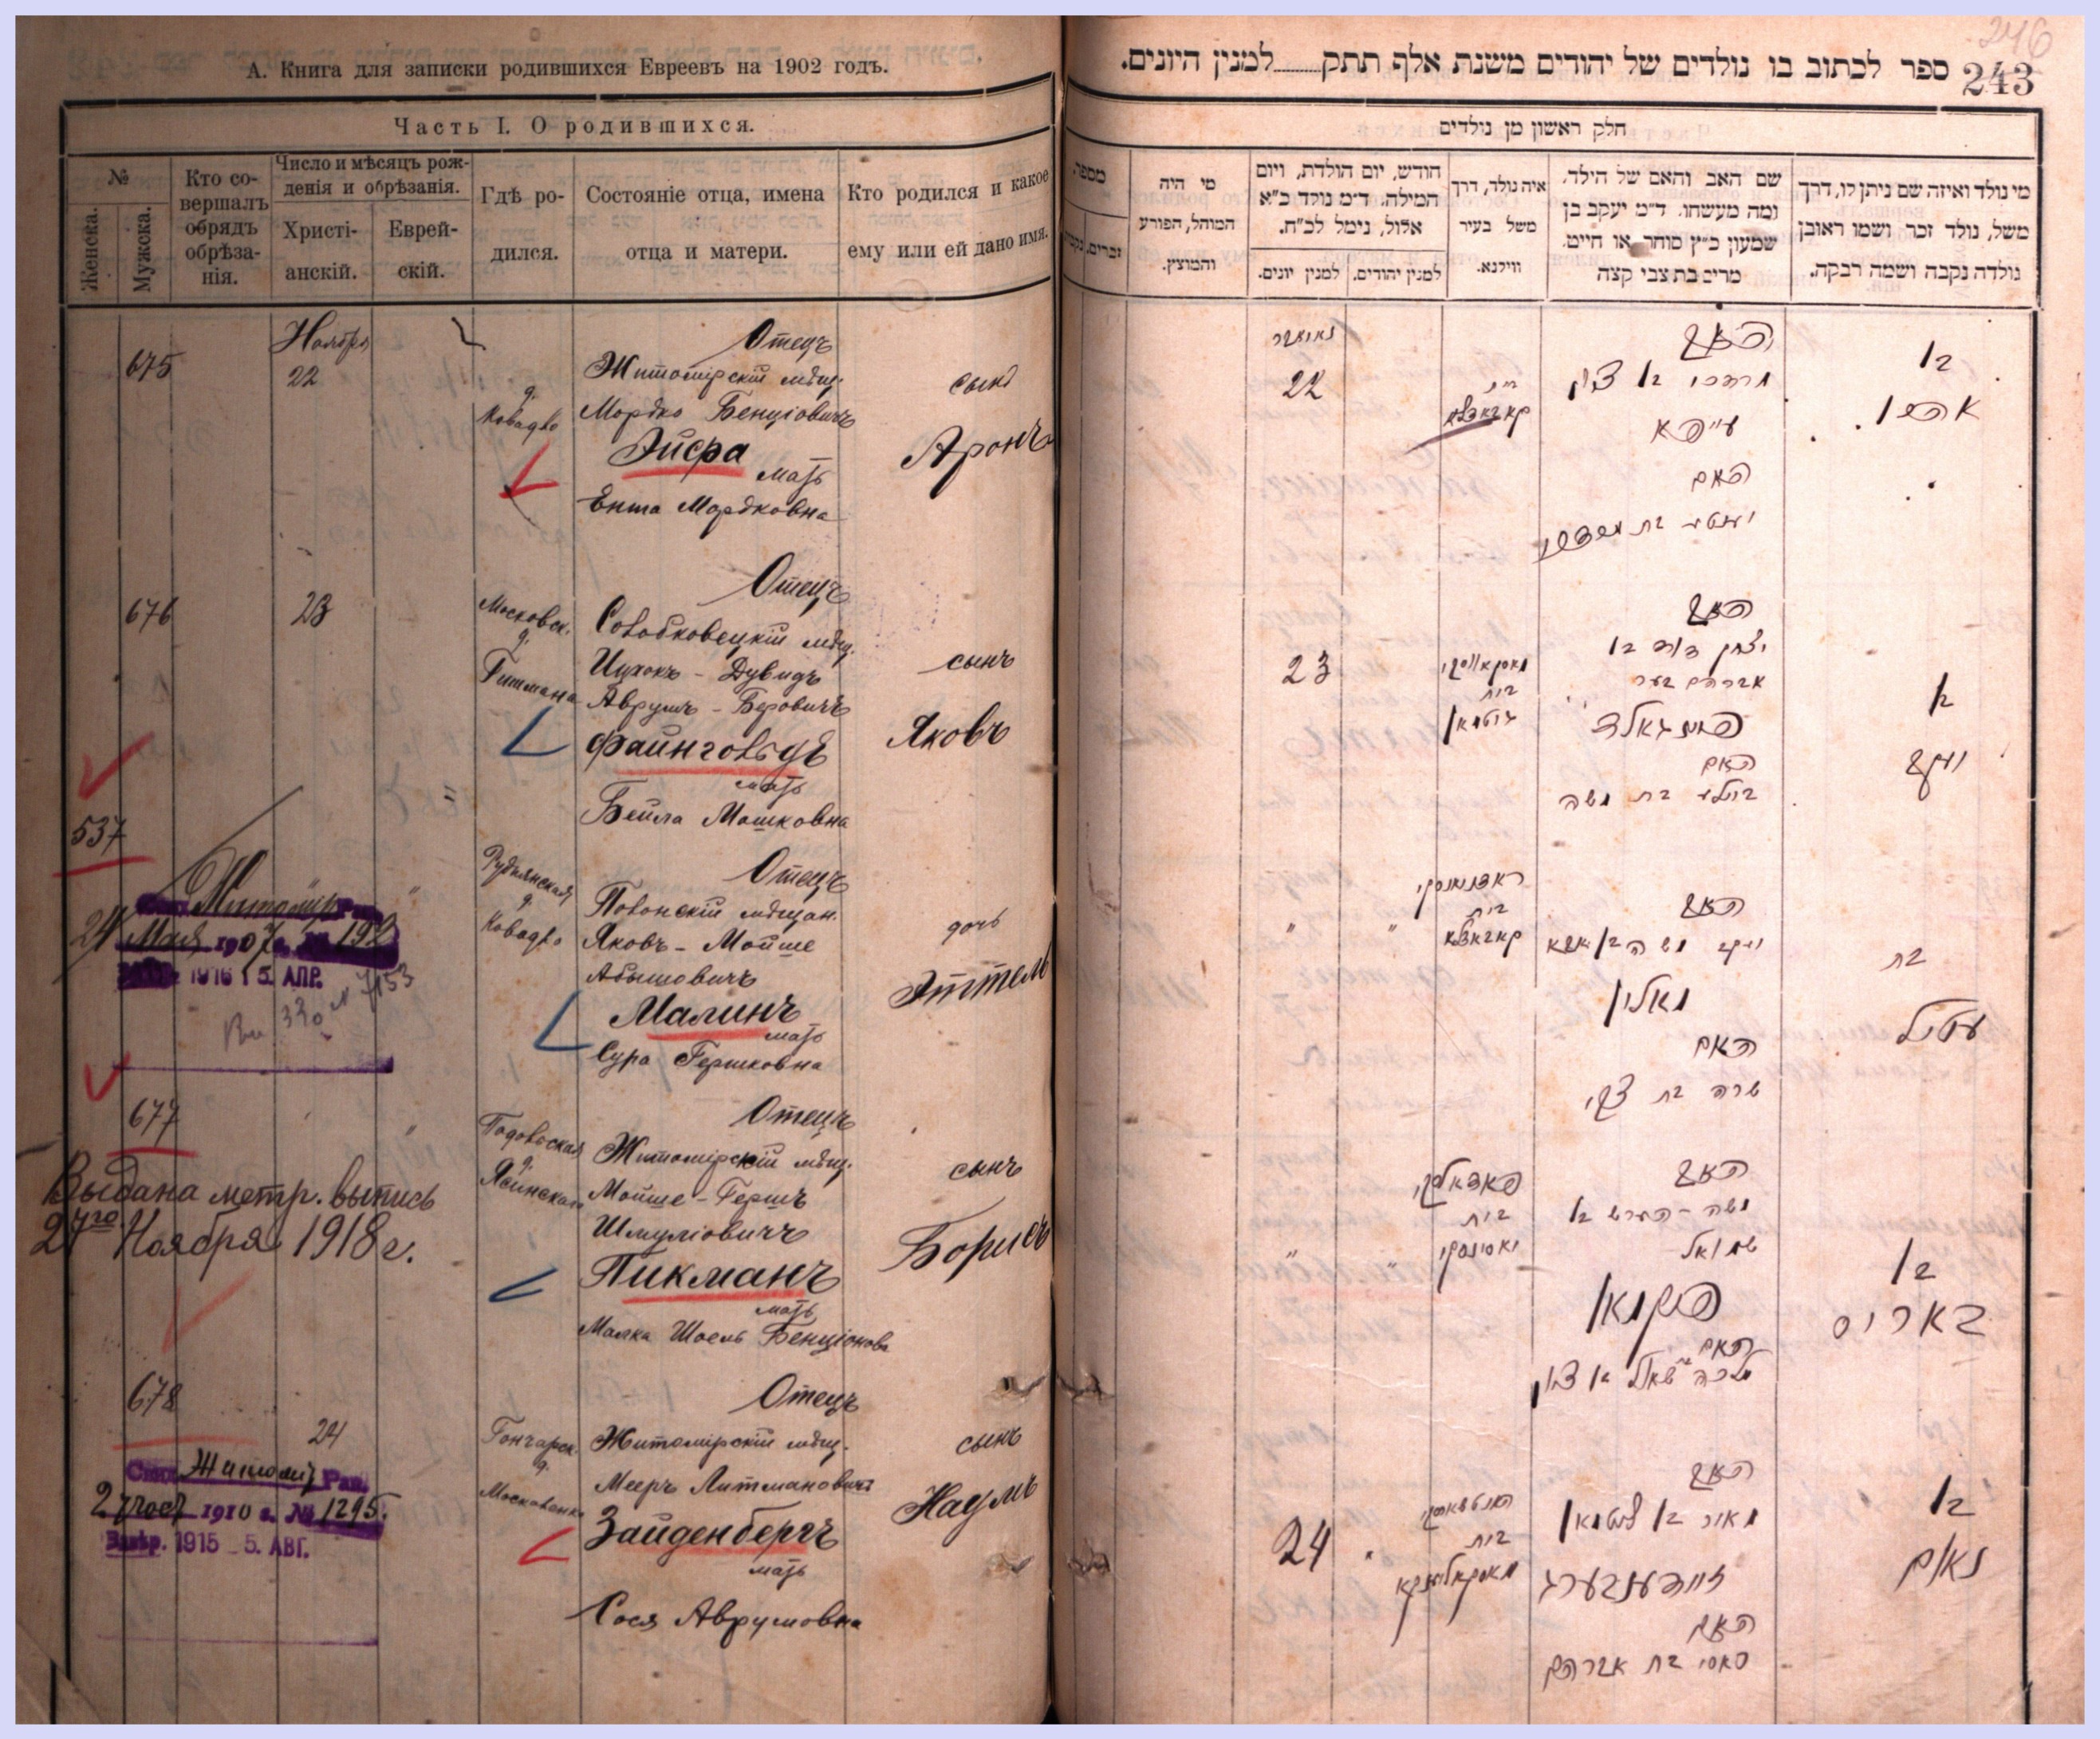 А. Книга для записки родившихся Евреевъ на 1902 годъ.
Часть I. О родившихся.
№
Женска.
Мужска.
Кто со-
вершалъ
обрядъ
обрѣза-
нія.
Число и мѣсяцъ рож-
денія и обрѣзанія.
Христі-
анскій.
Еврей-
скій.
Гдѣ ро-
дился.
Состояніе отца, имена
отца и матери.
Кто родился и какое
ему или ей дано имя.
675
Ноября
22
д.
Отецъ
Житомірскій мѣщ.
Мордко Бенціовичъ
Эйфра
мать
Ента Мордковна
сынъ
Аронъ
676
23
Московск.
д.
Гитмана
Отецъ
Ицхокъ - Дувидъ
Аврумъ - Беровичъ
Файнгольдъ
мать
Бейла Мошковна
сынъ
Яковъ
537
Житомір
24 Мая 1907 г. № 192
1916 15. АПР.
Руднянская
д.
Отецъ
Полонскій мѣщан.
Яковъ - Мойше
Абышовичъ
Малинъ
мать
Сура Гершковна
дочь
Эттель
677
Выдана метр. выпись
27го Ноября 1918 г.
д.
Отецъ
Житомірскій мѣщ.
Мойше - Гершъ
Шмуліовичъ
Пикманъ
мать
Малка Шоель Бенціонова
сынъ
Борисъ
678
24
1910 г. № 1295.
1915 5. АВГ.
Гончарск.
д.
Отецъ
Житомірскій мѣщ.
Мееръ Литмановичъ
Зайденбергъ
мать
Сося Аврумовна
сынъ
Наумъ
246
243
ספר לכתוב בו נולדים של יהודים משנת אלף תתק למנין היונים.
חלק ראשון מן נולדים
מי נולד ואיזה שם ניתן לו, דרך
משל, נולד זכר ושמו ראובן
נולדה נקבה ושמה רבקה.
שם האב והאם של הילד.
ומה מעשהו. ד״מ יעקב בן
שמעון כ״ץ סוחר או חייט.
מרים בת צבי קצה
איה נולד, דרך
משל בעיר
ווילנא.
חודש, יום הולדת, ויום
המילה. ד״מ נולד כ״א
אלול, נימל לכ״ח.
למנין יהודים.
למנין יונים.
מי היה
המוהל, הפורע
והמוצץ.
מספר.
זכרים.
נקבות
בן
אהרן
האב
מרדכי בן ציון
אייפרא
האם
יענטע בת מרדכי
בית
נאוועמבר
22
בן
יעקב
האב
יצחק דוד בן
אברהם בער
פיינגאלד
האם
ביילע בת משה
מאסקאווסקי
בית
גיטמאן
23
בת
עטיל
האב
מאלין
האם
שרה בת צבי
בית
בן
באריס
האב
משה - הערש בן
שמואל
פיקמאן
האם
בית
בן
נאום
האב
מאיר בן ליטמאן
זיידענבערג
האם
סאסי בת אברהם
בית
24